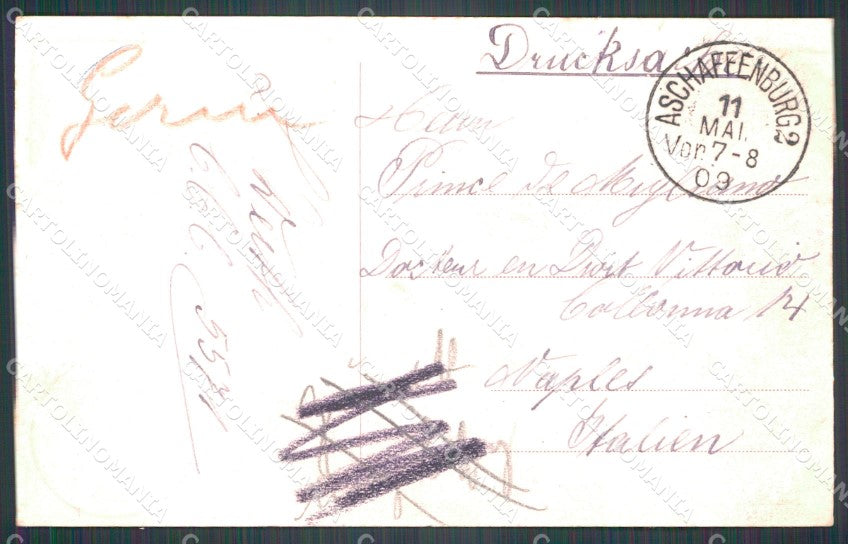 Drucksa
ASCHAFFENBURG 2
11
MAI.
Vor. 7-8
09
Herrn
Prince de Migliano
Docteur en Droit Vittorio
Colonna 14
Naples
Italien
C. C. C. 5571
CARTOLINOMANIA